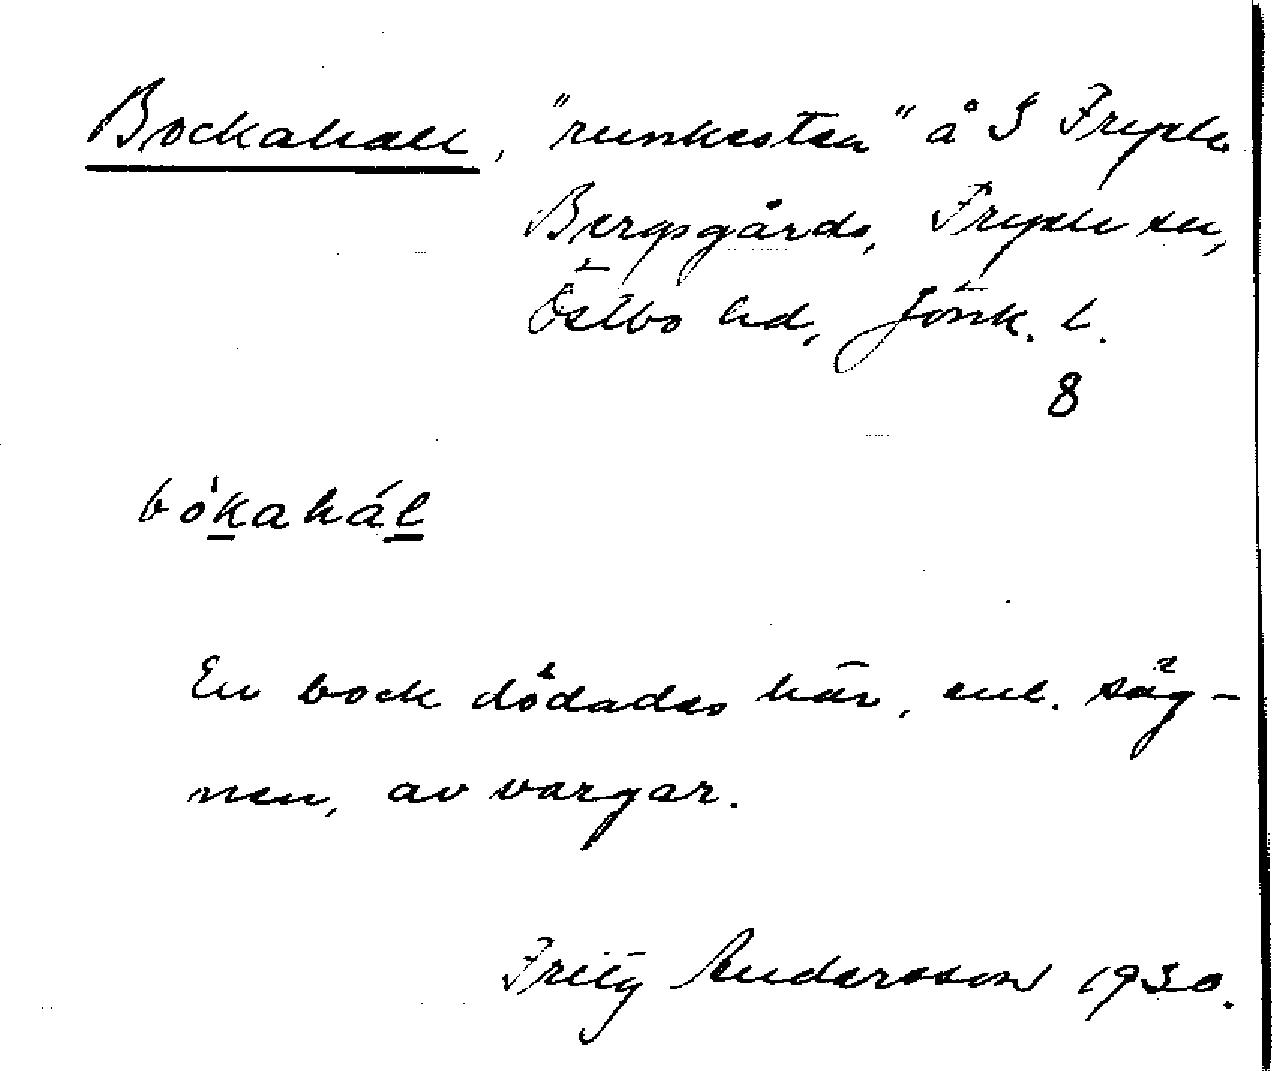 Bockahall, "runkesten" å S Fryele
Bergsgårds, Fryele sn,
Östbo hd, Jönk. l.
8
bókahál
En bock dödades här, enl. säg-
nen, av vargar.
Fritz Andersson 1930.